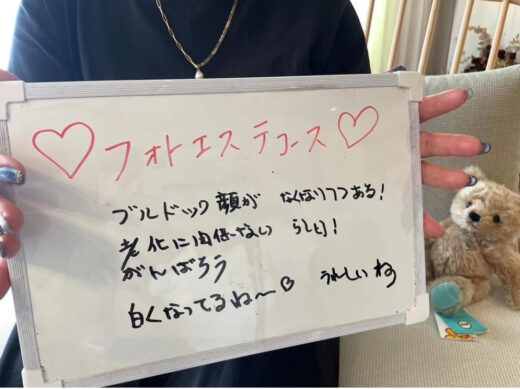 ♡フォトエステコース♡
ブルドック顔が なくなりつつある!
老化に関係ない らしい!
がんばろう
白くなってるね〜♡ うれしいね